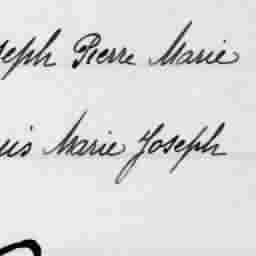 seph Pierre Marie
uis Marie Joseph